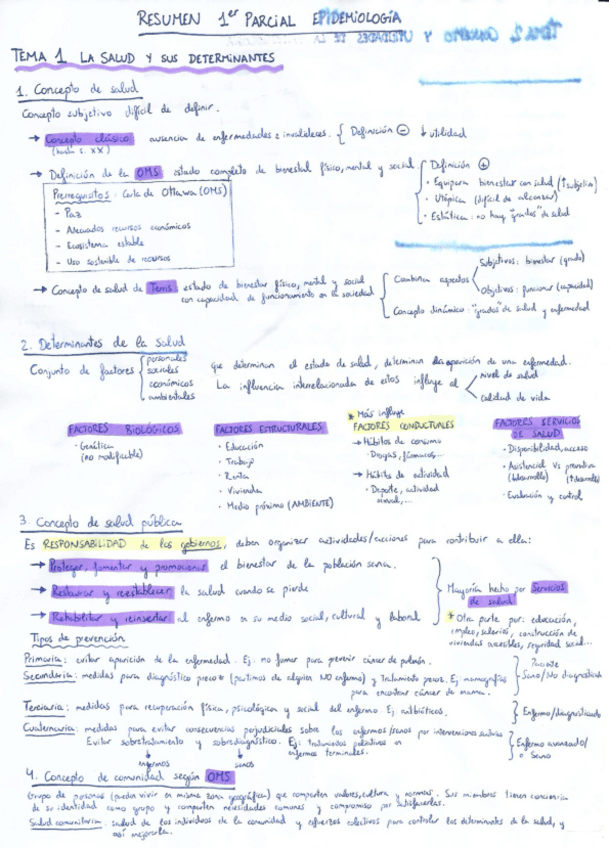 RESUMEN 1er PARCIAL EPIDEMIOLOGÍA
TEMA 1 LA SALUD Y SUS DETERMINANTES
1. Concepto de salud
Concepto subjetivo difícil de definir.
→ Concepto clásico ausencia de enfermedades e invalideces. { Definición ⊖ ↓ utilidad
(hasta s. XX)
→ Definición de la OMS estado completo de bienestar físico, mental y social. { Definición ⊕
· Equipara bienestar con salud (↑subjetiva)
· Utópica (difícil de alcanzar)
· Estática: no hay "grados" de salud
Prerrequisitos: Carta de Ottawa (OMS)
- Paz
- Adecuados recursos económicos
- Ecosistema estable
- Uso sostenible de recursos
→ Concepto de salud de Terris estado de bienestar físico, mental y social
con capacidad de funcionamiento en la sociedad
Combina aspectos < Subjetivos: bienestar (grado)
Objetivos: funcionar (capacidad)
Concepto dinámico: "grados" de salud y enfermedad
2. Determinantes de la salud
Conjunto de factores { personales
sociales
económicos
ambientales
que determinan el estado de salud, determinan la aparición de una enfermedad.
La influencia interrelacionada de estos influye al < nivel de salud
calidad de vida
FACTORES BIOLÓGICOS
· Genética
(no modificable)
FACTORES ESTRUCTURALES
· Educación
· Trabajo
· Renta
· Vivienda
· Medio próximo (AMBIENTE)
* Más influye
FACTORES CONDUCTUALES
→ Hábitos de consumo
· Drogas, fármacos...
→ Hábitos de actividad
· Deporte, actividad
sexual,...
FACTORES SERVICIOS
DE SALUD
· Disponibilidad, acceso
· Asistencial Vs preventiva
· Evaluación y control
3. Concepto de salud pública
Es RESPONSABILIDAD de los gobiernos, deben organizar actividades/acciones para contribuir a ella:
→ Proteger, fomentar y promocionar el bienestar de la población sana.
→ Restaurar y reestablecer la salud cuando se pierde
→ Rehabilitar y reinsertar al enfermo en su medio social, cultural y laboral
Mayoría hecho por Servicios
de salud
* Otra parte por: educación,
empleo, salarios, construcción de
viviendas accesibles, seguridad social...
Tipos de prevención
Primaria: evitar aparición de la enfermedad. Ej: no fumar para prevenir cáncer de pulmón.
Secundaria: medidas para diagnóstico precoz (partimos de alguien NO enfermo) y tratamiento precoz. Ej: mamografías
para encontrar cáncer de mama.
Sano/No diagnosticado
Terciaria: medidas para recuperación física, psicológica y social del enfermo. Ej: antibióticos.
Enfermo/diagnosticado
Cuaternaria: medidas para evitar consecuencias perjudiciales sobre los enfermos/sanos por intervenciones sanitarias
Evitar sobretratamiento y sobrediagnóstico. Ej: tratamientos paliativos en
enfermos terminales.
enfermos sanos
Enfermo avanzado/
Sano
4. Concepto de comunidad según OMS
Grupo de personas (pueden vivir en misma zona geográfica) que comparten valores, cultura y normas. Sus miembros tienen conciencia
de su identidad como grupo y comparten necesidades comunes y compromiso por satisfacerlas.
Salud comunitaria: salud de los individuos de la comunidad y esfuerzos colectivos para controlar los determinantes de la salud, y
así mejorarla.